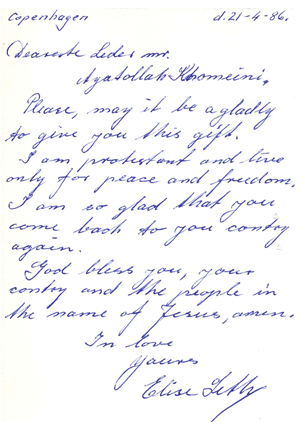 Copenhagen d. 21-4-86.
Deareste Leder mr.
Ayatollah Khomeini.
Please, may it be a gladly
to give you this gift.
I am protestant and live
only for peace and freedom.
I am so glad that you
come back to you contry
again.
God bless you, your
contry and the people in
the name of Jesus, amen.
In love
Yours
Elise